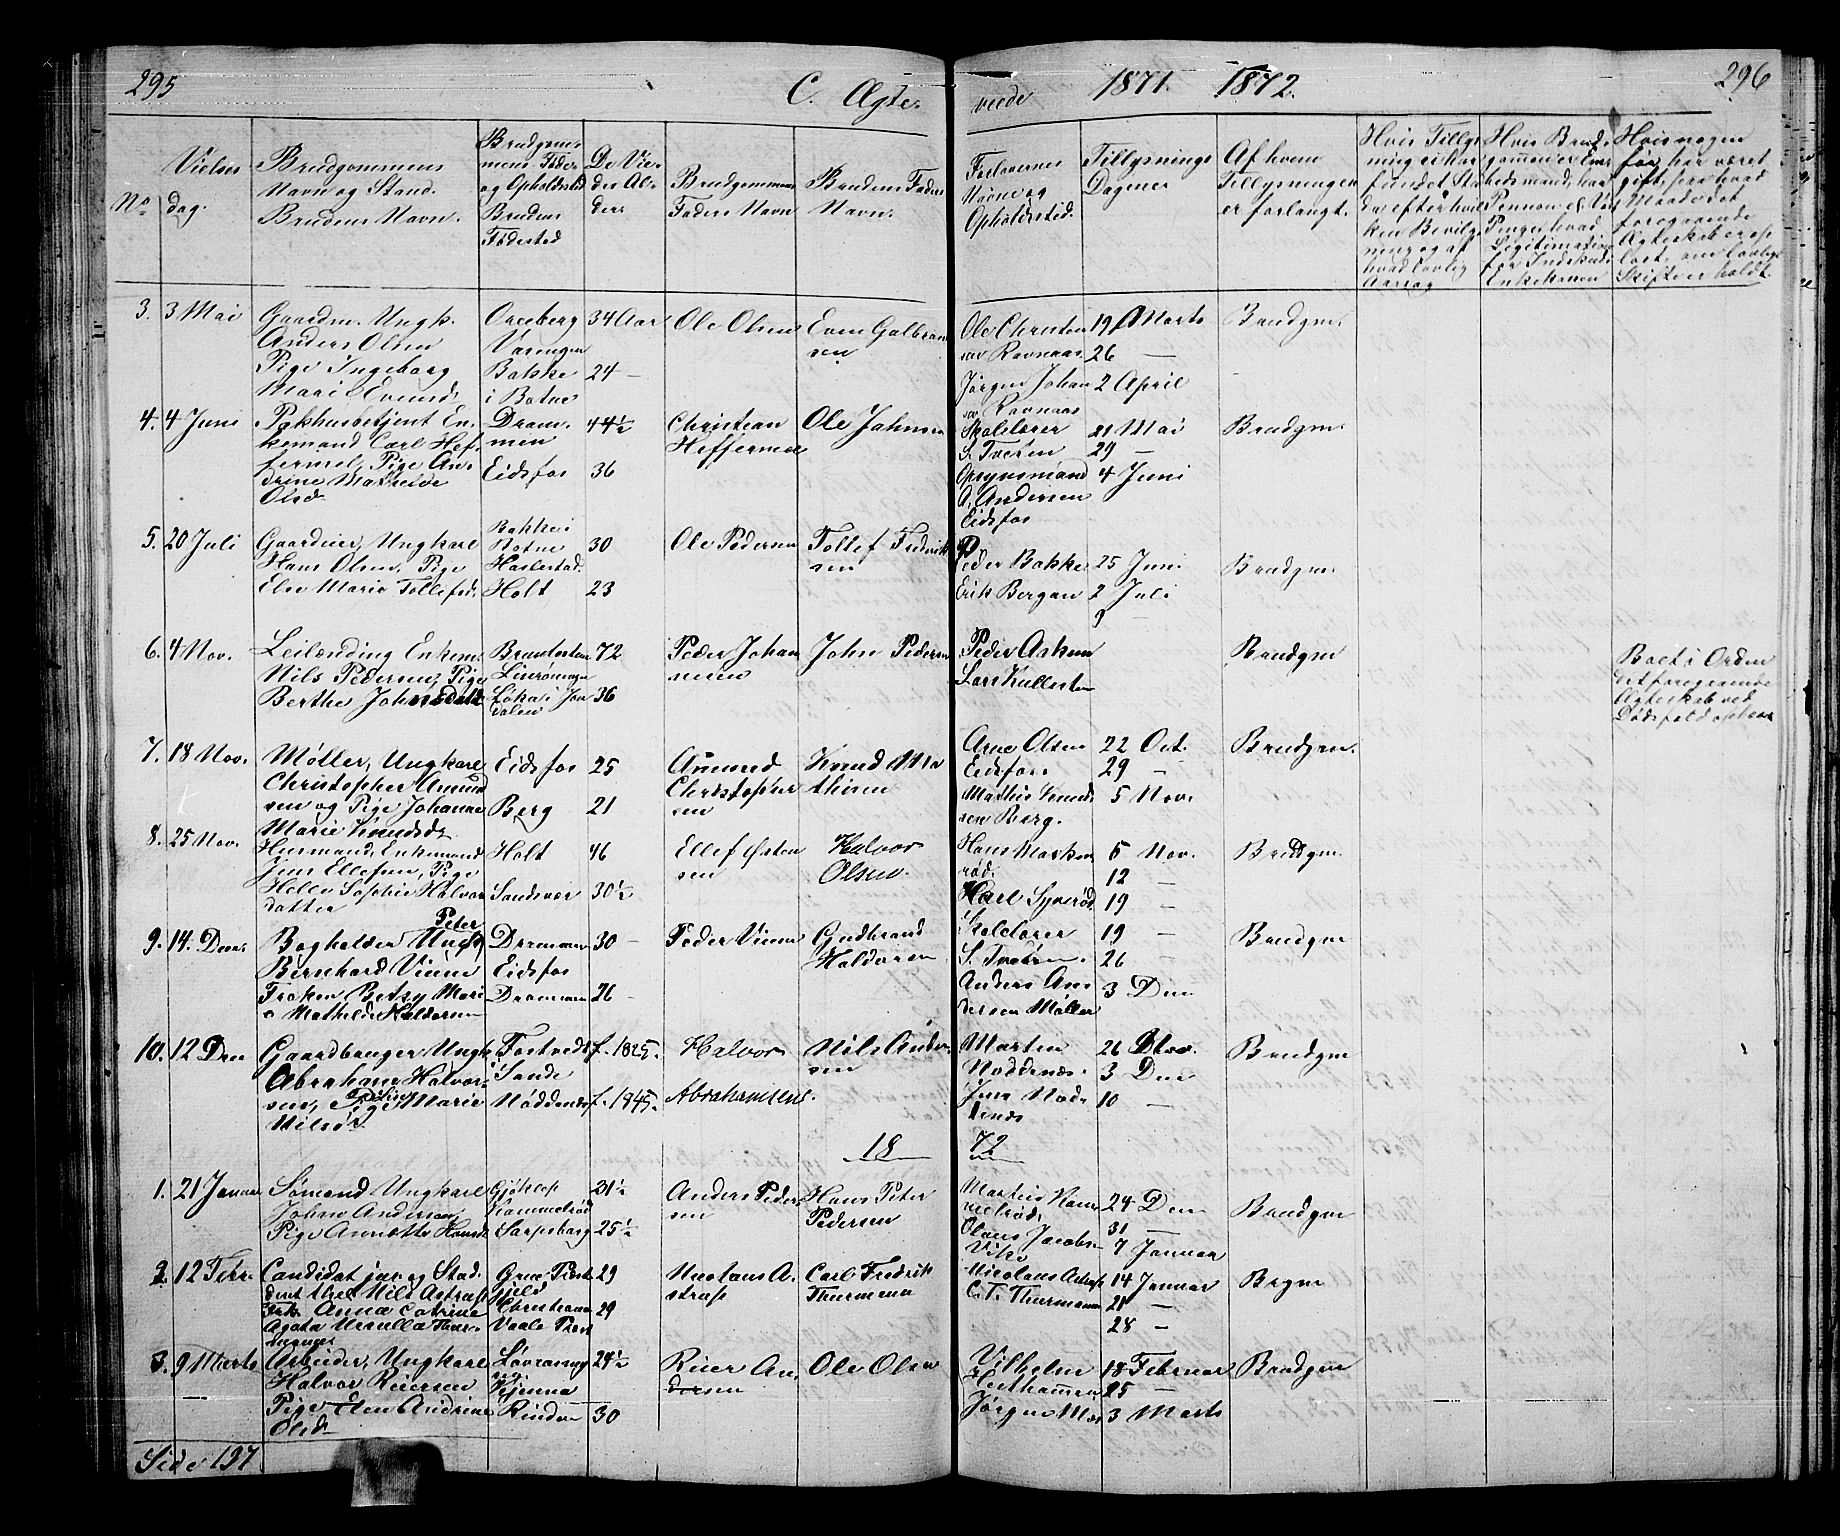 295
C. Ægte-
viede 1871. 1872.
296
No
Vielses
dag.
Brudgommens
Navn og Stand.
Brudens Navn.
Brudgom
mens Føde-
og Opholdssted
Brudens
Fødested
De Vie-
des Al-
der.
Brudgommens
Faders Navn
Brudens Faders
Navn.
Forlovernes
Navne og
Opholdssted.
Tillysnings
Dagene
Af hvem
Tillysningen
er forlangt.
Hvis Tillys
ning ei har
fundet Sted
da efter hvil
ken Bevilg
ning og af
hvad lovlig
Aarsag
Hvis Brud
gommen er
for Indskud i
Enkekassen
Hvis nogen
før har været
gift, paa hvad
Maade det
foregaaende
Ægteskab er op
løst, om lovligt
Skifte er holdt.
3. 3 Mai
Gaardm. Ungk.
Anders Olsen
Pige Ingeborg
Marie Evensd.
Oreberg
Varingen
Bakke
i Botne
34 Aar
24 —
Ole Olsen
Even Gulbran
sen
Ole Christen
sen Ravnaas
Jørgen Johan
sen Ravnaas
19 Marts
26 —
2 April
Brudgm.
4. 4 Juni
Pakhusbetjent En-
kemand Carl Hef
fermel, Pige An-
drine Mathilde
Olsd.
Dram-
men
Eidsfos
44½
36
Christian
Heffermel
Ole Johnsen
Skolelærer
S. Tveten
Opsynsmand
A. Andersen
Eidsfos
21 Mai
29 —
4 Juni
Brudgm.
5. 20 Juli
Gaardeier, Ungkarl
Hans Olsen, Pige
Else Marie Tollefsd.
Bakke i
Botne
Haslestad
Holt
30
23
Ole Pedersen
Tollef Fredrik
sen
Peder Bakke
Erik Bergan
25 Juni
2 Juli
9 —
Brudgm.
6. 4 Nov.
Leilænding Enkem.
Nils Pedersen, Pige
Berthe Johnsdatt.
72
36
Peder Johan
nesen
John Pedersen
Peder Askum
Lars Kullesten
Brudgm
Bevis i Orden
det foregaaende
Ægteskab ved
Dødsfald opløst
7. 18 Nov.
Møller, Ungkarl
Christopher Amund
sen og Pige Johanne
Marie Knudsd.
Eidsfos
Berg
25
21
Amund
Christopher
sen
Knud Ma
thisen
Arne Olsen
Eidsfos
Mathis Knud
sen Berg.
22 Oct.
29 —
5 Nov.
Brudgm.
8. 25 Nov.
Husmand, Enkemand
Jens Ellefsen, Pige
Helle Sophie Halvors
datter
Holt
Sandsvær
46
30½
Ellef Østen
sen
Halvor
Olsen.
Hans Marken
rød.
Karl Synerød
5 Nov.
12 —
19 —
Brudgm.
9. 14. Dec.
Bogholder Ungk Peter
Bernhard Vinne
Frøken Betsy Mari
e Mathilde Haldorsen
Drammen
Eidsfos
Drammen
30 —
26 —
Peder Vinne
Gudbrand
Haldorsen
Skolelærer
S. Tveten.
Anders An
dersen Møller
19 —
26 —
3 Dec
Brudgm
10. 12 Dec
Gaardbruger Ungk
Abraham Halvor-
sen, Pige Marie
Nilsd.
Tostveds
i Sande
Nøddenæs
f. 1825.
f. 1845.
Halvor
Abrahamsen.
Nils Ander
sen
Morten
Nøddenæs
Jens Nød
denæs
26 Nov.
3 Dec
10 —
Brudgm
18 72
1. 21 Januar
Sømand Ungkarl
Johan Andersen,
Pige Annette Hansd.
Gjøkop
Hammelrød
Sarpsborg
31½
25½
Anders Peder
sen
Hans Peter
Pedersen
Mathis Ham
melrød,
Olaus Jacobs.
Vike
24 Dec
31 —
7 Januar
Brudgm
2. 12 Febr.
Candidat jur. og Stud.
Nils Astrup
Frk. Anna Catrine
Agata Ursulla Thur-
mann
Grue Præst
gjeld
Christiania
Vaale Præst
29
29
Nicolaus A-
strup
Carl Fredrik
Thurmann
Nicolaus Astrup
C. F. Thurmann
14 Januar
21 —
28 —
Brgm
3. 9 Marts
Arbeider, Ungkarl
Halvor Reiersen
Pige Elen Andrine
Olsd.
Hjenna
Rinden
24½
30
Reier An
dersen
Ole Olsen
Vilhelm
Jørgen Moe
18 Februar
25 —
3 Marts
Brudgm
Side 197